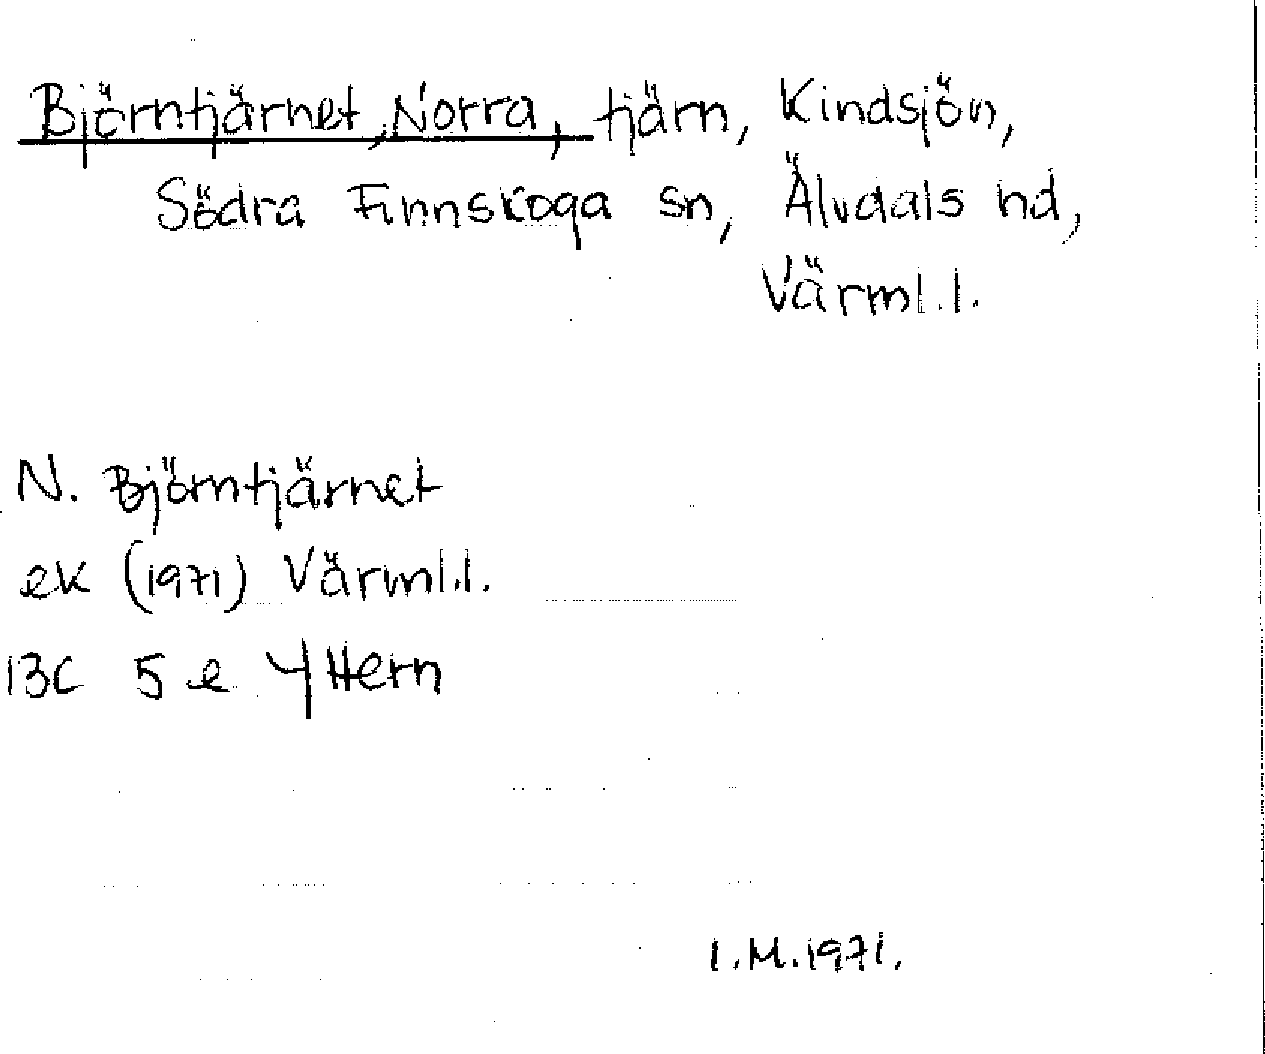 Björntjärnet, Norra, tjärn, Kindsjön,
Södra Finnskoga sn, Älvdals hd,
Värml.l.
N. Björntjärnet
ek (1971) Värml.l.
13C 5 e Yttern
I.M.1971.